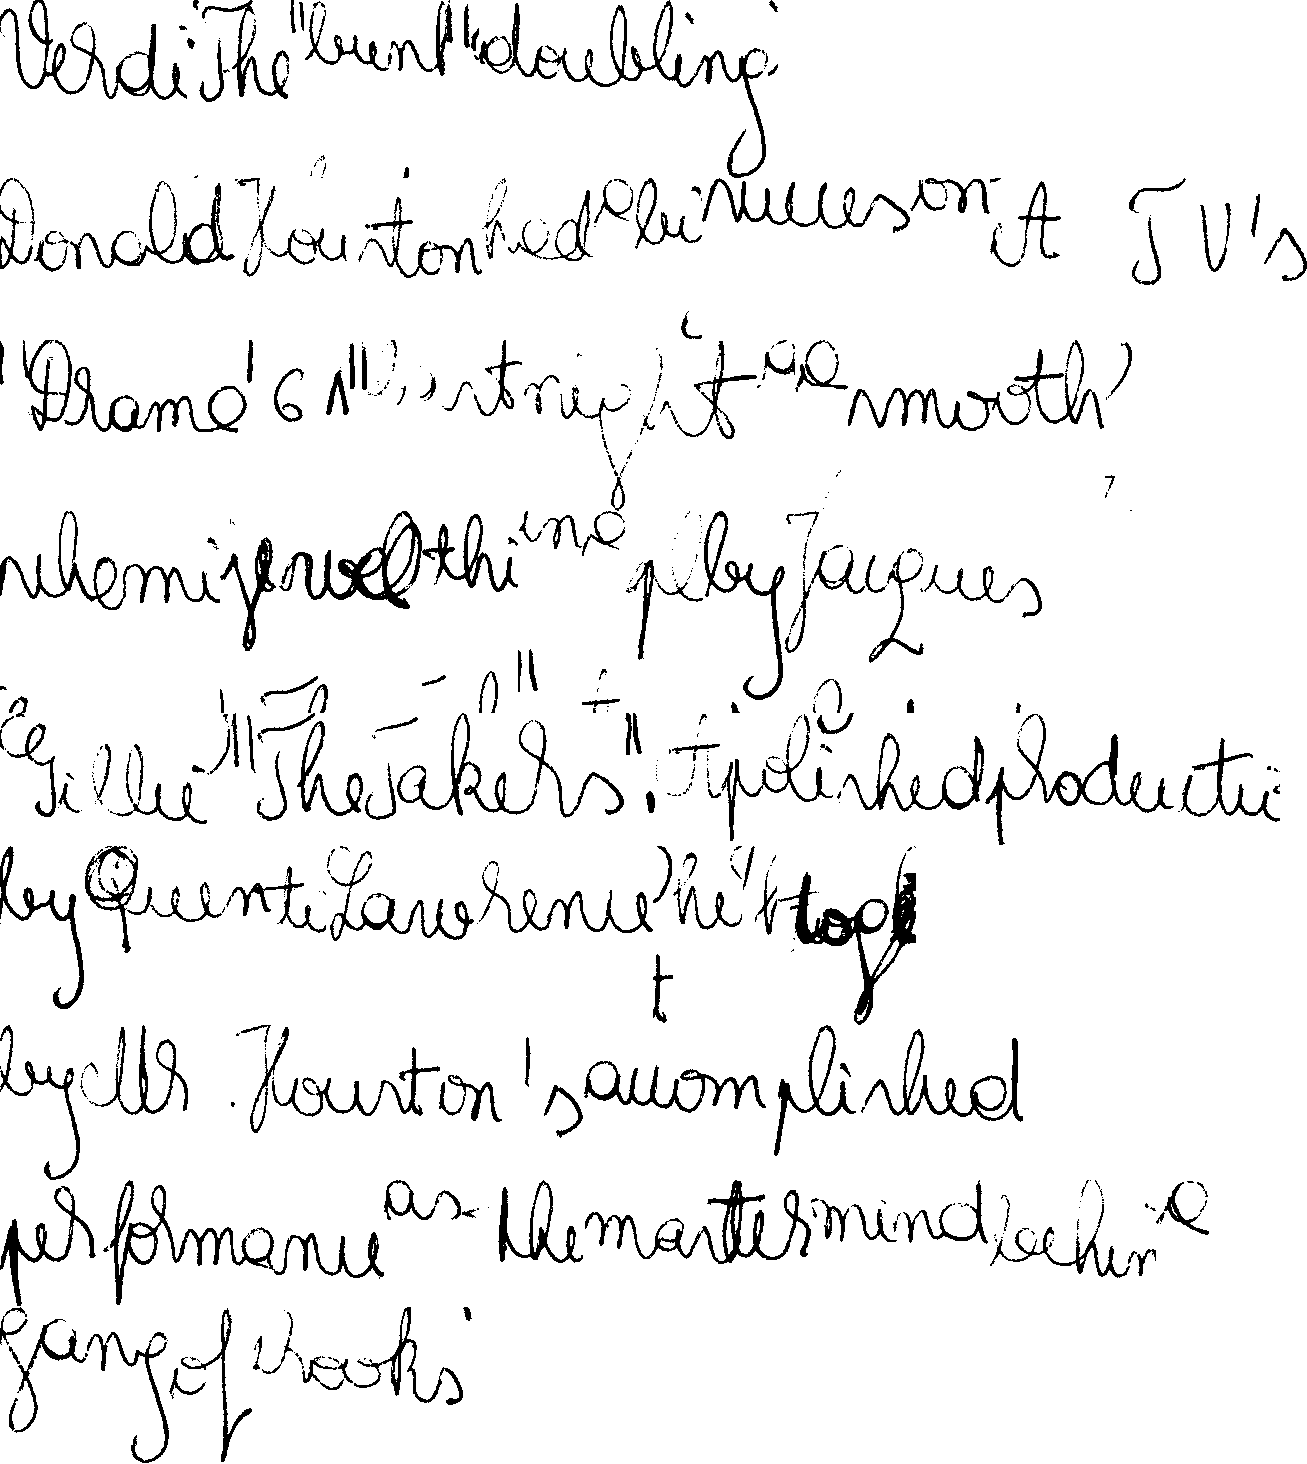 Verdi The "bent" doubling
Donald Houston had a big success on A TV's
"Drama '61" last night as a smooth
schemi jewel thi in a pl by Jacques
Gillie "The Takers". A polished producti
by Quenti Lawrence he t toge
by Mr. Houston's accomplished
performance as the mastermind behin a
gang of crooks